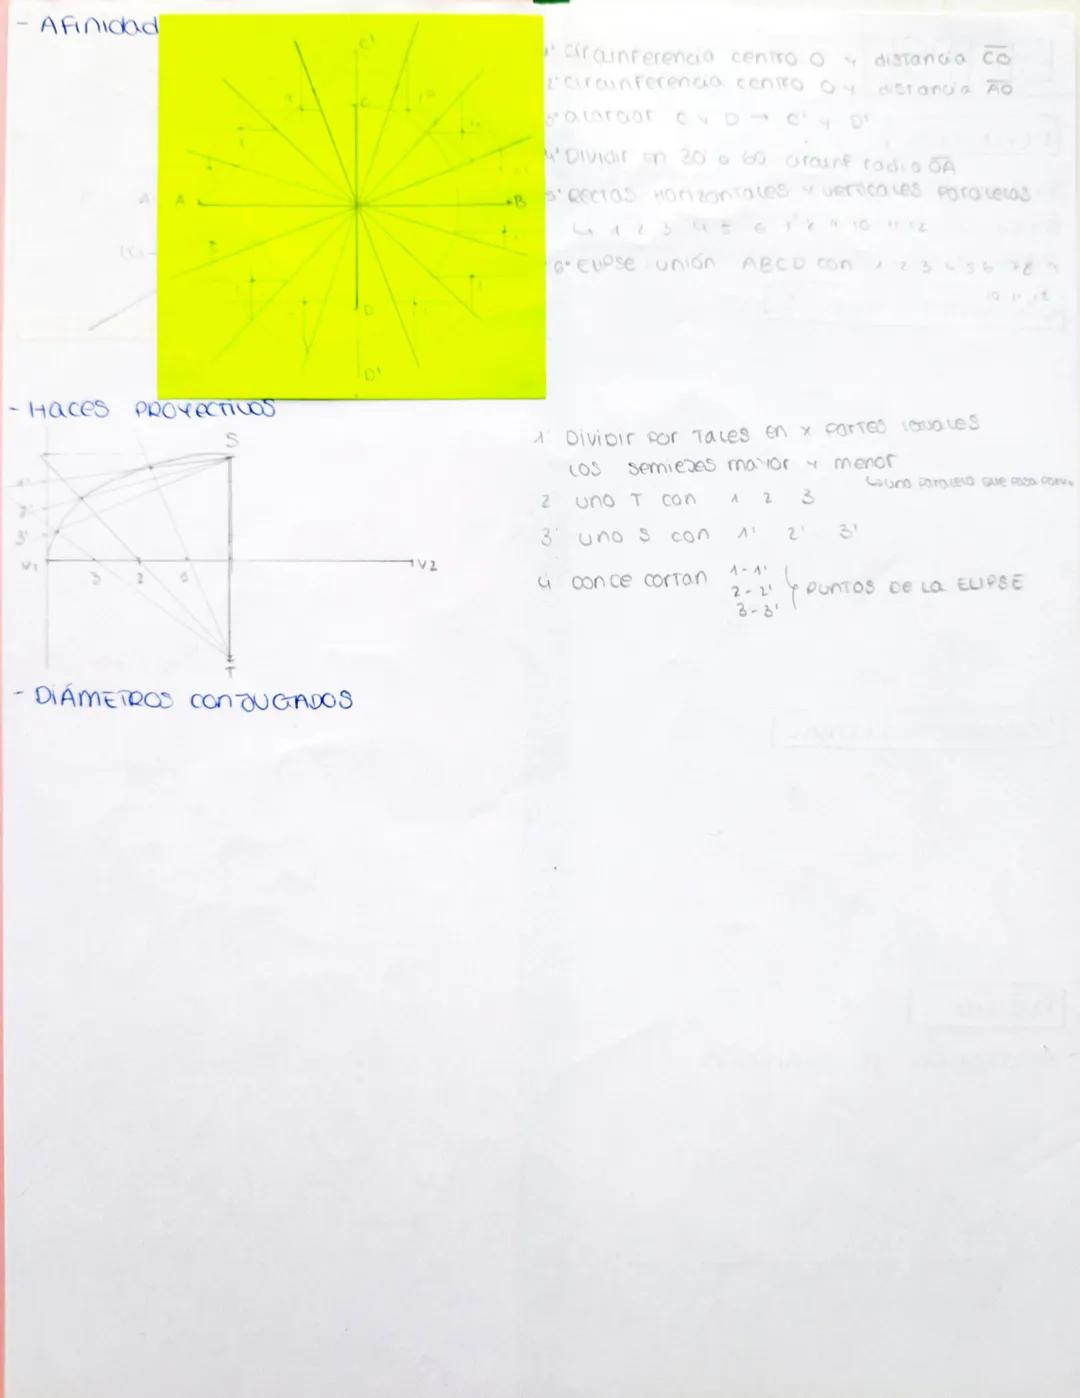 - Afinidad
C'
C
A
A
B
D
D'
1º circunferencia centro O y distancia CO
2º circunferencia centro O y distancia AO
3º alargar C y D → C' y D'
4º Dividir en 30 o 60 circunf radio OA
5º Rectas Horizontales y verticales paralelas
↳ 1 2 3 4 5 6 7 8 9 10 11 12
6º Elipse unión ABCD con 1 2 3 4 5 6 7 8 9
10 11 12
- Haces PROYECTIVOS
S
1'
2'
3'
V1
3 2
V2
T
1 Dividir por Tales en x partes iguales
los semiejes mayor y menor
2 uno T con 1 2 3
3 uno S con 1' 2' 3'
4 donde cortan 1-1'
2-2' PUNTOS DE LA ELIPSE
3-3'
- DIÁMETROS CONJUGADOS